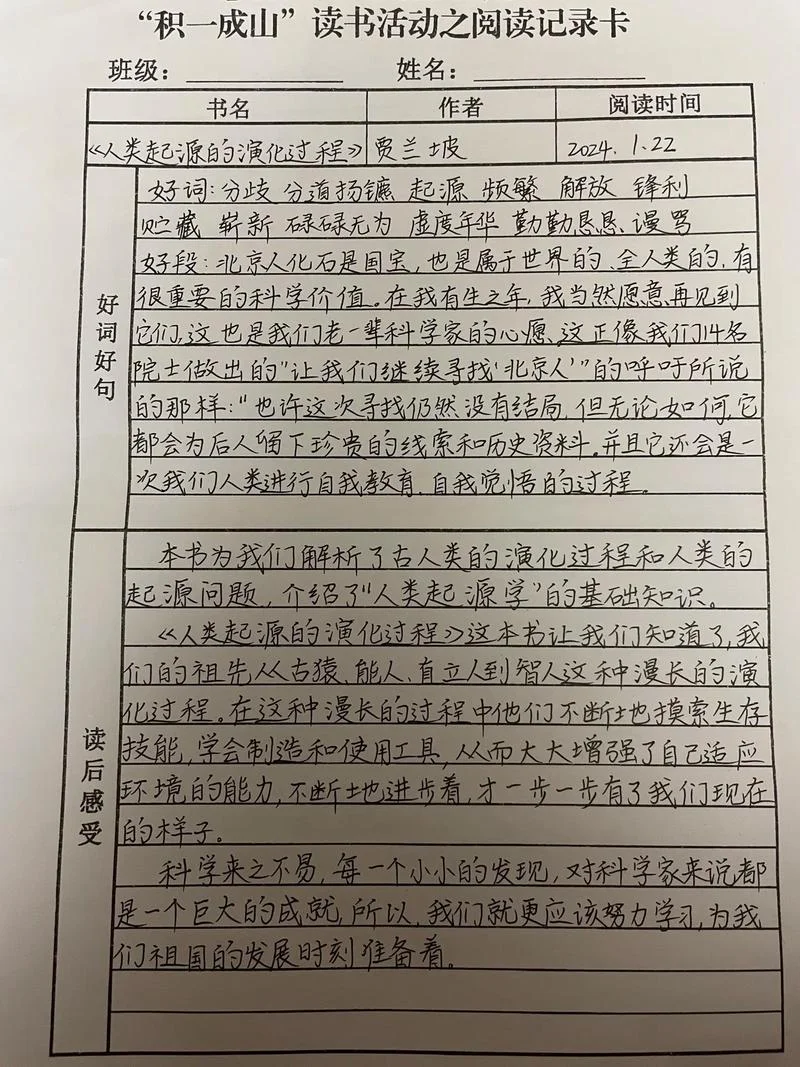 “积一成山”读书活动之阅读记录卡
班级： 姓名：
书名 作者 阅读时间
《人类起源的演化过程》 贾兰坡 2024.1.22
好词好句
好词：分歧 分道扬镳 起源 频繁 解放 锋利
贮藏 崭新 碌碌无为 虚度年华 勤勤恳恳 谩骂
好段：北京人化石是国宝，也是属于世界的、全人类的，有
很重要的科学价值。在我有生之年，我当然愿意再见到
它们，这也是我们老一辈科学家的心愿、这正像我们14名
院士做出的“让我们继续寻找‘北京人’”的呼吁所说
的那样：“也许这次寻找仍然没有结局，但无论如何，它
都会为后人留下珍贵的线索和历史资料。并且它还会是一
次我们人类进行自我教育、自我觉悟的过程。
读后感受
本书为我们解析了古人类的演化过程和人类的
起源问题，介绍了“人类起源学”的基础知识。
《人类起源的演化过程》这本书让我们知道了，我
们的祖先从古猿、能人、直立人到智人这种漫长的演
化过程。在这种漫长的过程中他们不断地摸索生存
技能，学会制造和使用工具，从而大大增强了自己适应
环境的能力，不断地进步着，才一步一步有了我们现在
的样子。
科学来之不易，每一个小小的发现，对科学家来说都
是一个巨大的成就，所以，我们就更应该努力学习，为我
们祖国的发展时刻准备着。